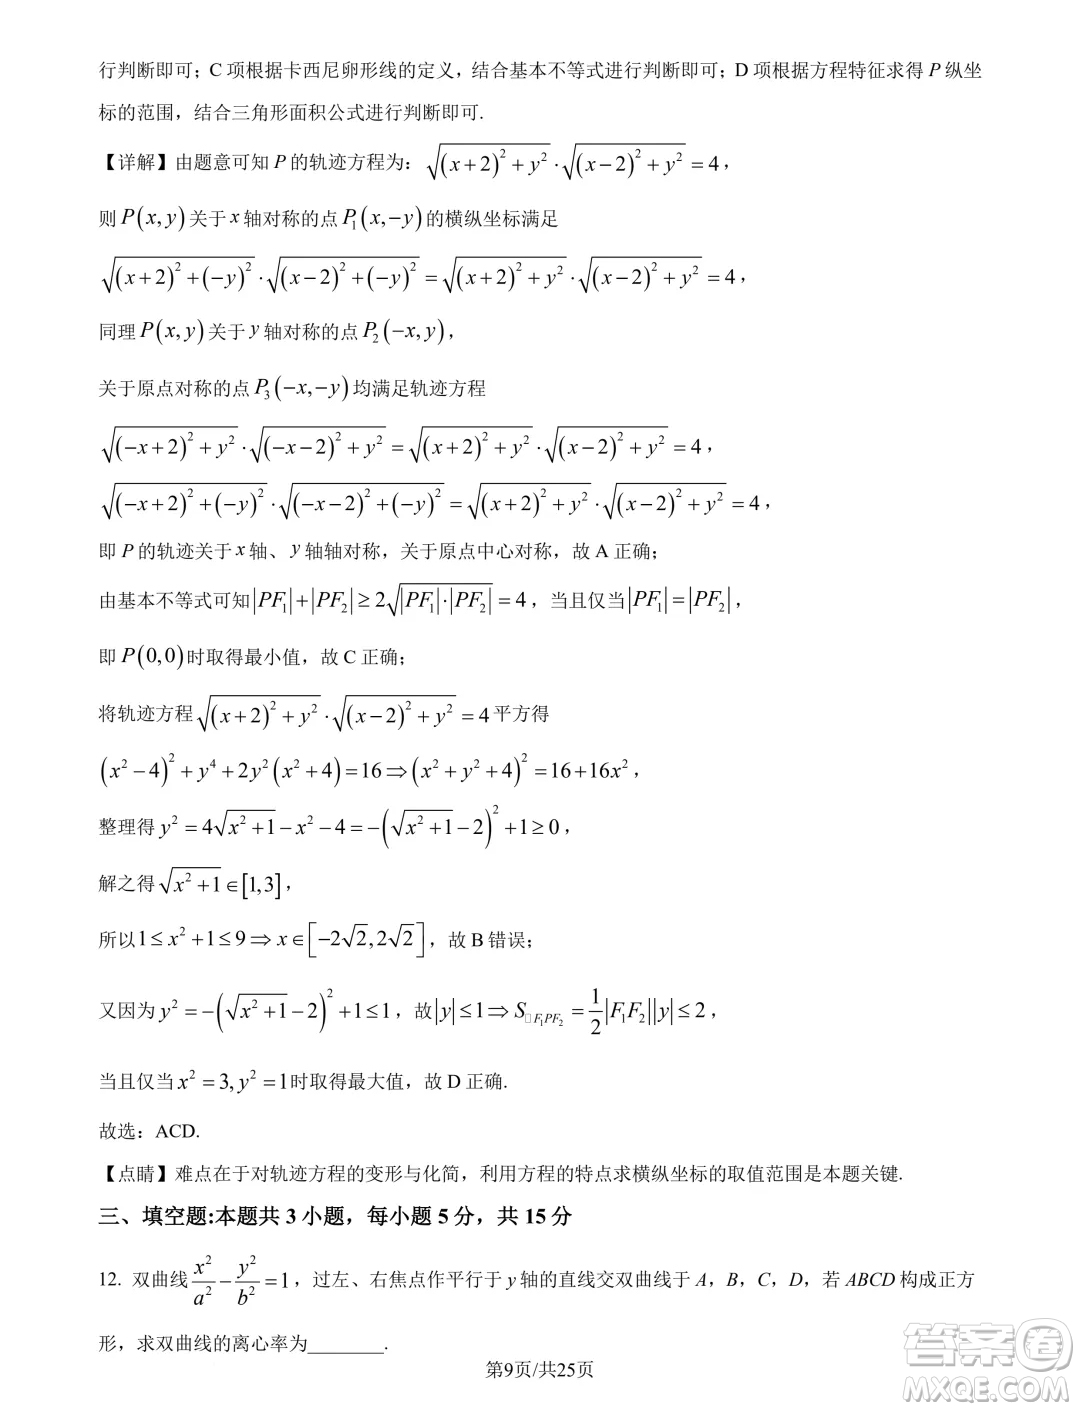 行判断即可；C 项根据卡西尼卵形线的定义，结合基本不等式进行判断即可；D 项根据方程特征求得 P 纵坐
标的范围，结合三角形面积公式进行判断即可.
【详解】由题意可知 P 的轨迹方程为：√((x+2)²+y²)·√((x−2)²+y²)=4，
则 P(x,y) 关于 x 轴对称的点 P₁(x,−y) 的横纵坐标满足
√((x+2)²+(−y)²)·√((x−2)²+(−y)²)=√((x+2)²+y²)·√((x−2)²+y²)=4，
同理 P(x,y) 关于 y 轴对称的点 P₂(−x,y)，
关于原点对称的点 P₃(−x,−y) 均满足轨迹方程
√((−x+2)²+y²)·√((−x−2)²+y²)=√((x+2)²+y²)·√((x−2)²+y²)=4，
√((−x+2)²+(−y)²)·√((−x−2)²+(−y)²)=√((x+2)²+y²)·√((x−2)²+y²)=4，
即 P 的轨迹关于 x 轴、y 轴轴对称，关于原点中心对称，故 A 正确；
由基本不等式可知|PF₁|+|PF₂|≥2√(|PF₁|·|PF₂|)=4，当且仅当|PF₁|=|PF₂|，
即 P(0,0) 时取得最小值，故 C 正确；
将轨迹方程√((x+2)²+y²)·√((x−2)²+y²)=4 平方得
(x²−4)²+y⁴+2y²(x²+4)=16⇒(x²+y²+4)²=16+16x²，
整理得 y²=4√(x²+1)−x²−4=−(√(x²+1)−2)²+1≥0，
解之得√(x²+1)∈[1,3]，
所以1≤x²+1≤9⇒x∈[−2√2,2√2]，故 B 错误；
又因为 y²=−(√(x²+1)−2)²+1≤1，故|y|≤1⇒S□F₁PF₂=1/2|F₁F₂||y|≤2，
当且仅当 x²=3,y²=1时取得最大值，故 D 正确.
故选：ACD.
【点睛】难点在于对轨迹方程的变形与化简，利用方程的特点求横纵坐标的取值范围是本题关键.
三、填空题:本题共 3 小题，每小题 5 分，共 15 分
12. 双曲线 x²/a²−y²/b²=1，过左、右焦点作平行于 y 轴的直线交双曲线于 A，B，C，D，若 ABCD 构成正方
形，求双曲线的离心率为________.
第9页/共25页
答案卷
MXQE.COM